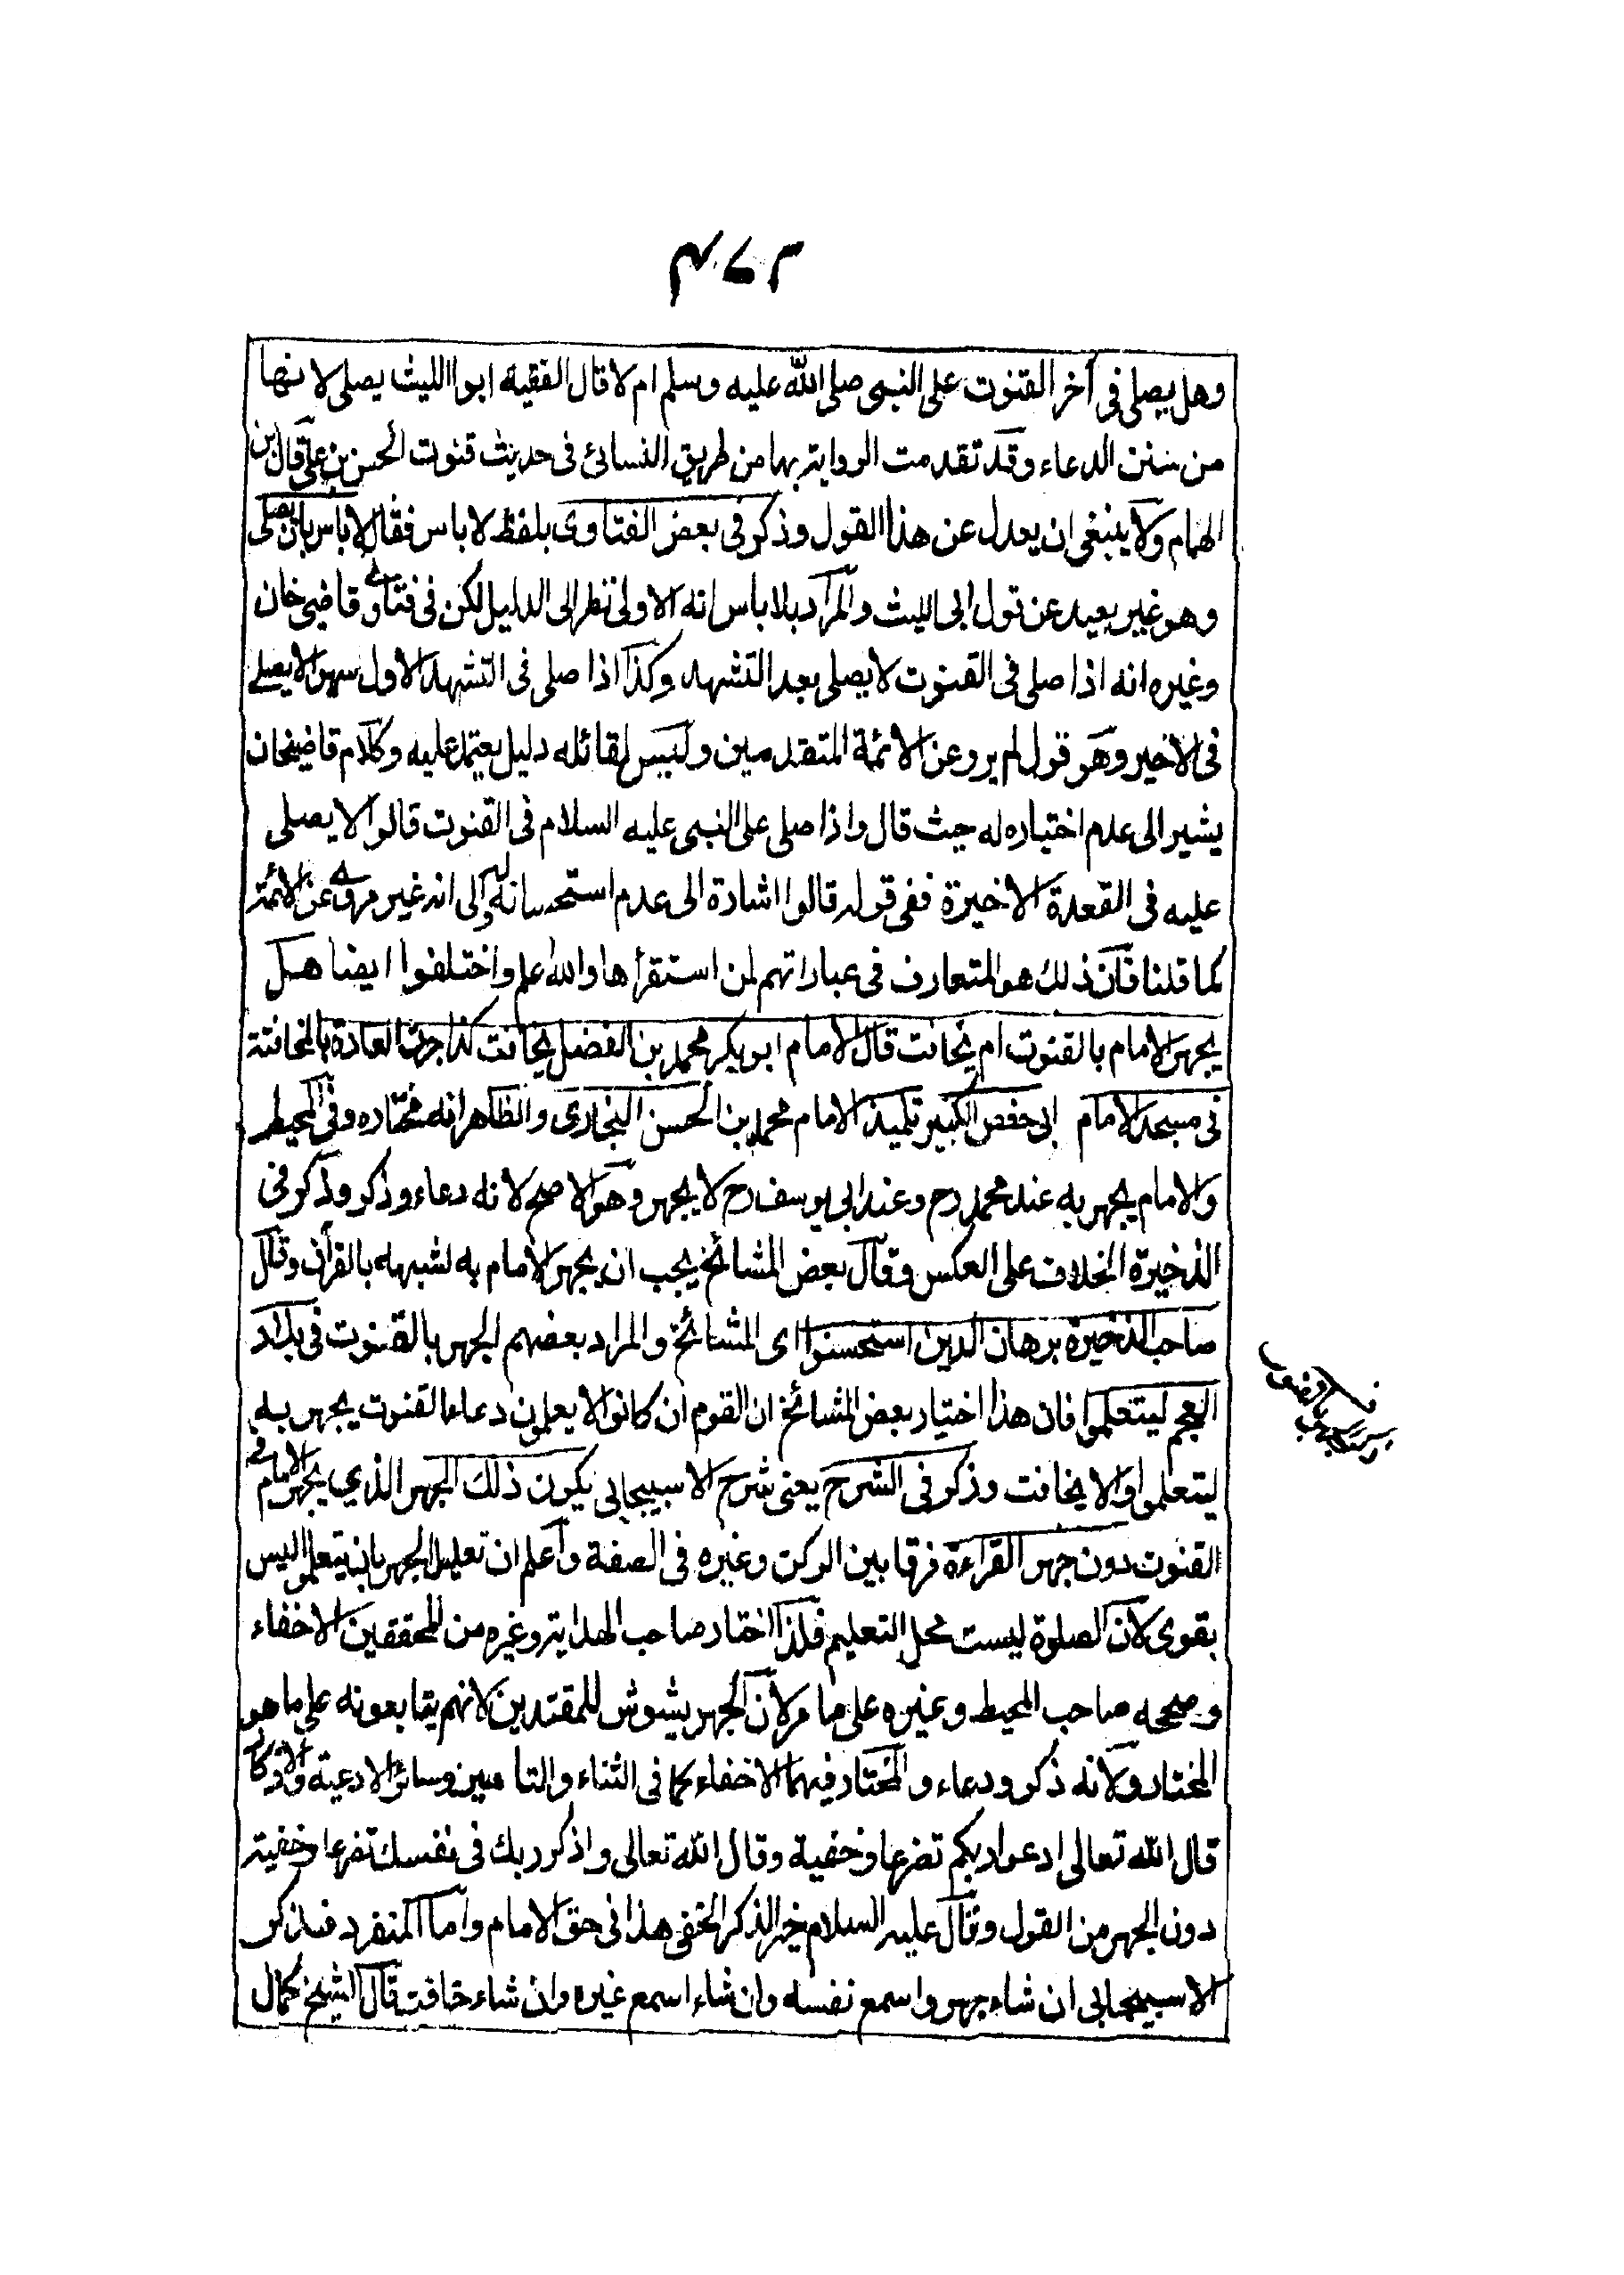 ٣٧٤
وهل يصلى فى أخر القنوت على النبى صلى الله عليه وسلم ام لا قال الفقيه ابوا الليث يصلى لانها
من سنن الدعاء وقد تقدمت الرواية بها من طريق النسائى فى حديث قنوت الحسن بن على قال ابن
الهمام ولا ينبغى ان يعدل عن هذا القول وذكر فى بعض الفتاوى بلفظ لاباس فقال لاباس بان يصلى
وهو غير بعيد عن قول ابى الليث والمراد بلاباس انه الاولى نظرا الى الدليل لكن فى فتاوى قاضى خان
وغيره انه اذا صلى فى القنوت لا يصلى بعد التشهد وكذا اذا صلى فى التشهد الاول سهوا لا يصلے
فى الاخير وهو قول لم يرو عن الائمة المتقدمين وليس لقائله دليل يعتمد عليه وكلام قاضيخان
يشير الى عدم اختياره له حيث قال واذا صلى على النبى عليه السلام فى القنوت قالوا لا يصلى
عليه فى القعدة الاخيرة ففى قوله قالوا اشارة الى عدم استحسانه له والى انه غير مروى عن الائمة
كما قلنا فان ذلك هو المتعارف فى عباراتهم لمن استقرأها والله علم واختلفوا ايضا هل
يجهر الامام بالقنوت ام يخافت قال الامام ابو بكر محمد بن الفضل يخافت كذا جرت العادة بالمخافتة
فى مسجد الامام ابى حفص الكبير تلميذ الامام محمد بن الحسن البخارى والظاهر انه مختاره وفى المحيط
والامام يجهر به عند محمد رح وعند ابى يوسف رح لا يجهر وهو الاصح لانه دعاء وذكر وذكر فى
الذخيرة الخلاف على العكس وقال بعض المشائخ يجب ان يجهر الامام به لشبهه بالقرآن وقال
صاحب الذخيرة برهان الدين استحسنوا اى المشائخ والمراد بعضهم الجهر بالقنوت فى بلاد
العجم ليتعلموا فان هذا اختيار بعض المشائخ ان القوم ان كانوا لا يعلمون دعاء القنوت يجهر به
ليتعلموا والا يخافت وذكر فى الشرح يعنى شرح الاسبيجابى يكون ذلك الجهر الذي يجهر الامام فى
القنوت دون جهر القراءة فرقا بين الركن وغيره فى الصفة واعلم ان تعليل الجهر بان يتعلموا ليس
بقوى لان الصلوة ليست محل التعليم فلذا اختار صاحب الهداية وغيره من المحققين الاخفاء
وصححه صاحب المحيط وغيره على ما مر لان الجهر يشوش للمقتدين لانهم يتابعونه على ما هو
المختار ولانه ذكر ودعاء والمختار فيهما الاخفاء كما فى الثناء والتامين وسائر الادعية والاذكار
قال الله تعالى ادعوا ربكم تضرعا وخفية وقال الله تعالى واذكر ربك فى نفسك تضرعا وخفية
دون الجهر من القول وقال عليه السلام خير الذكر الخفى هذا فى حق الامام واما المنفرد فذكر
الاسبيجابى ان شاء جهر واسمع نفسه وان شاء اسمع غيره وان شاء خافت قال الشيخ كمال